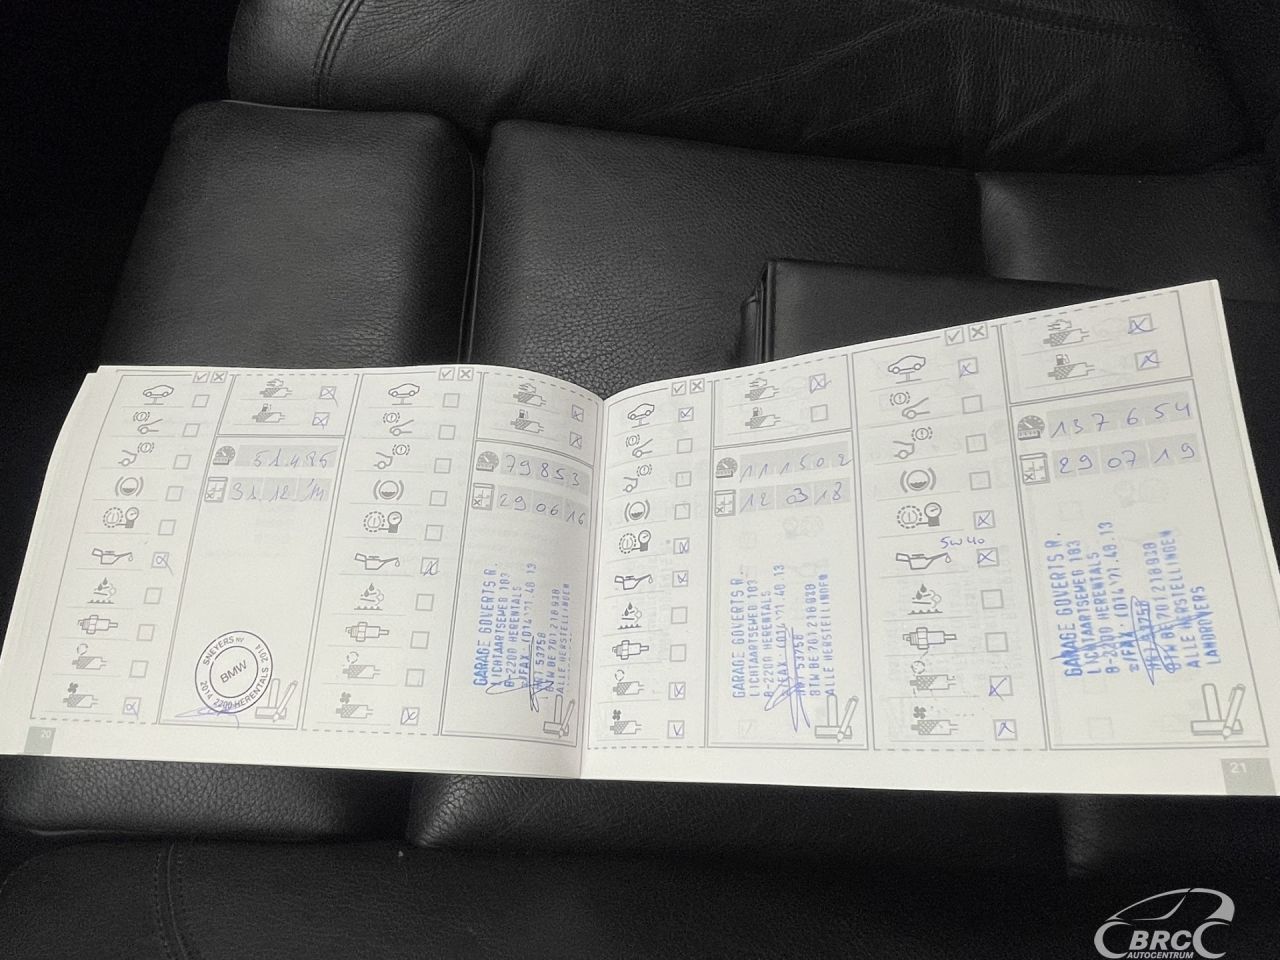 51485
31 12 '11
SNEYERS NV
BMW
2014 2200 HERENTALS 2014
20
79853
29 06 16
GARAGE GOVERTS R.
LICHTAARTSEWEG 183
B-2200 HERENTALS
BTW BE 701218938
ALLE HERSTELLINGEN
111502
12 03 18
GARAGE GOVERTS R.
LICHTAARTSEWEG 183
B-2200 HERENTALS
BTW BE 701218938
ALLE HERSTELLINGEN
5W40
137654
29 07 19
GARAGE GOVERTS R.
LICHTAARTSEWEG 183
B-2200 HERENTALS
BTW BE 701218938
ALLE HERSTELLINGEN
LANDROVERS
21
BRC
AUTOCENTRUM